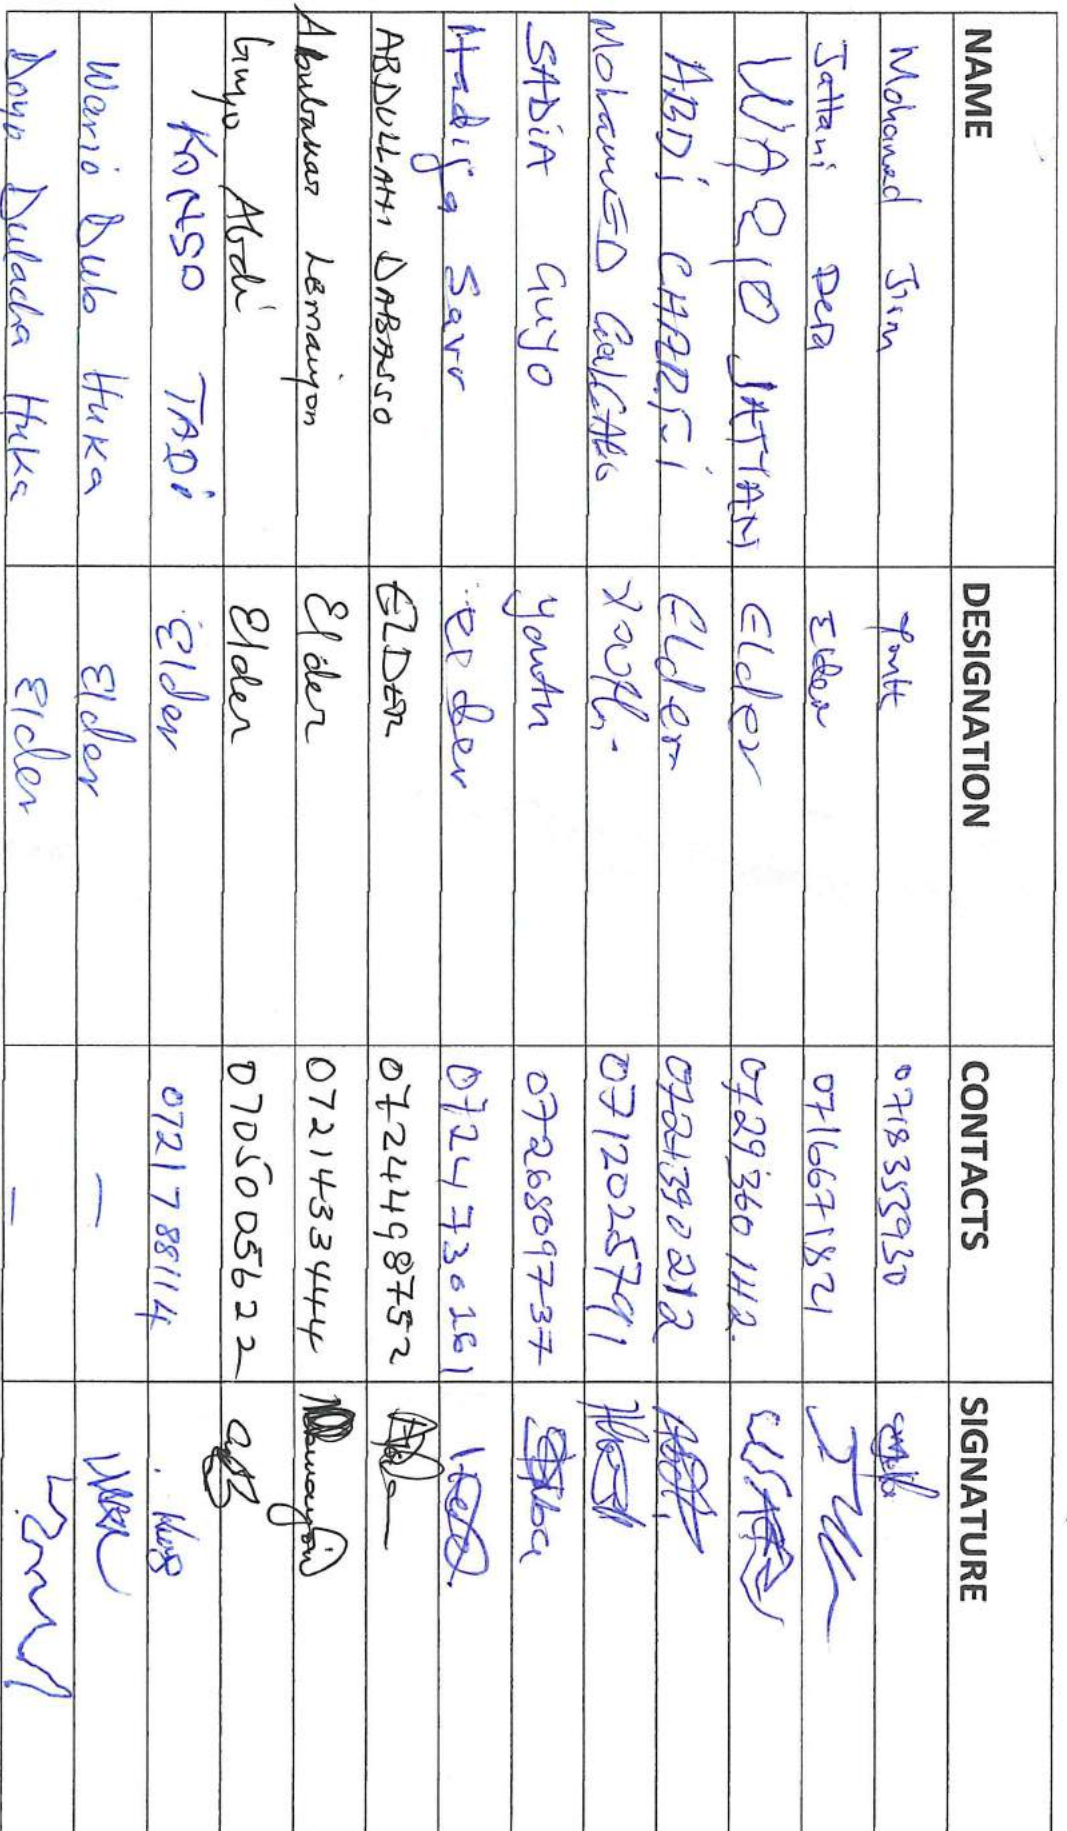 NAME DESIGNATION CONTACTS SIGNATURE
Mohamed Jirm Youth 0718353930
Jattani Dera Elder 0716671821
WAQIO JATTANI Elder 0729360142.
ABDI CHARFI Elder 0721390212
MohamED GalGAlo Youth. 0712025791
SADiA GUyO Youth 0726809737
Hadija Sarr 0724730161
ABDULLAHI DABASSO ELDER 0724498752
Abubakar Lemayon Elder 0721433444
Guyo Abdi Elder 0705005622
KONSO TADi Elder 0721788114
Wario Dub Huka Elder —
Doyo Dulacha Huka Elder —